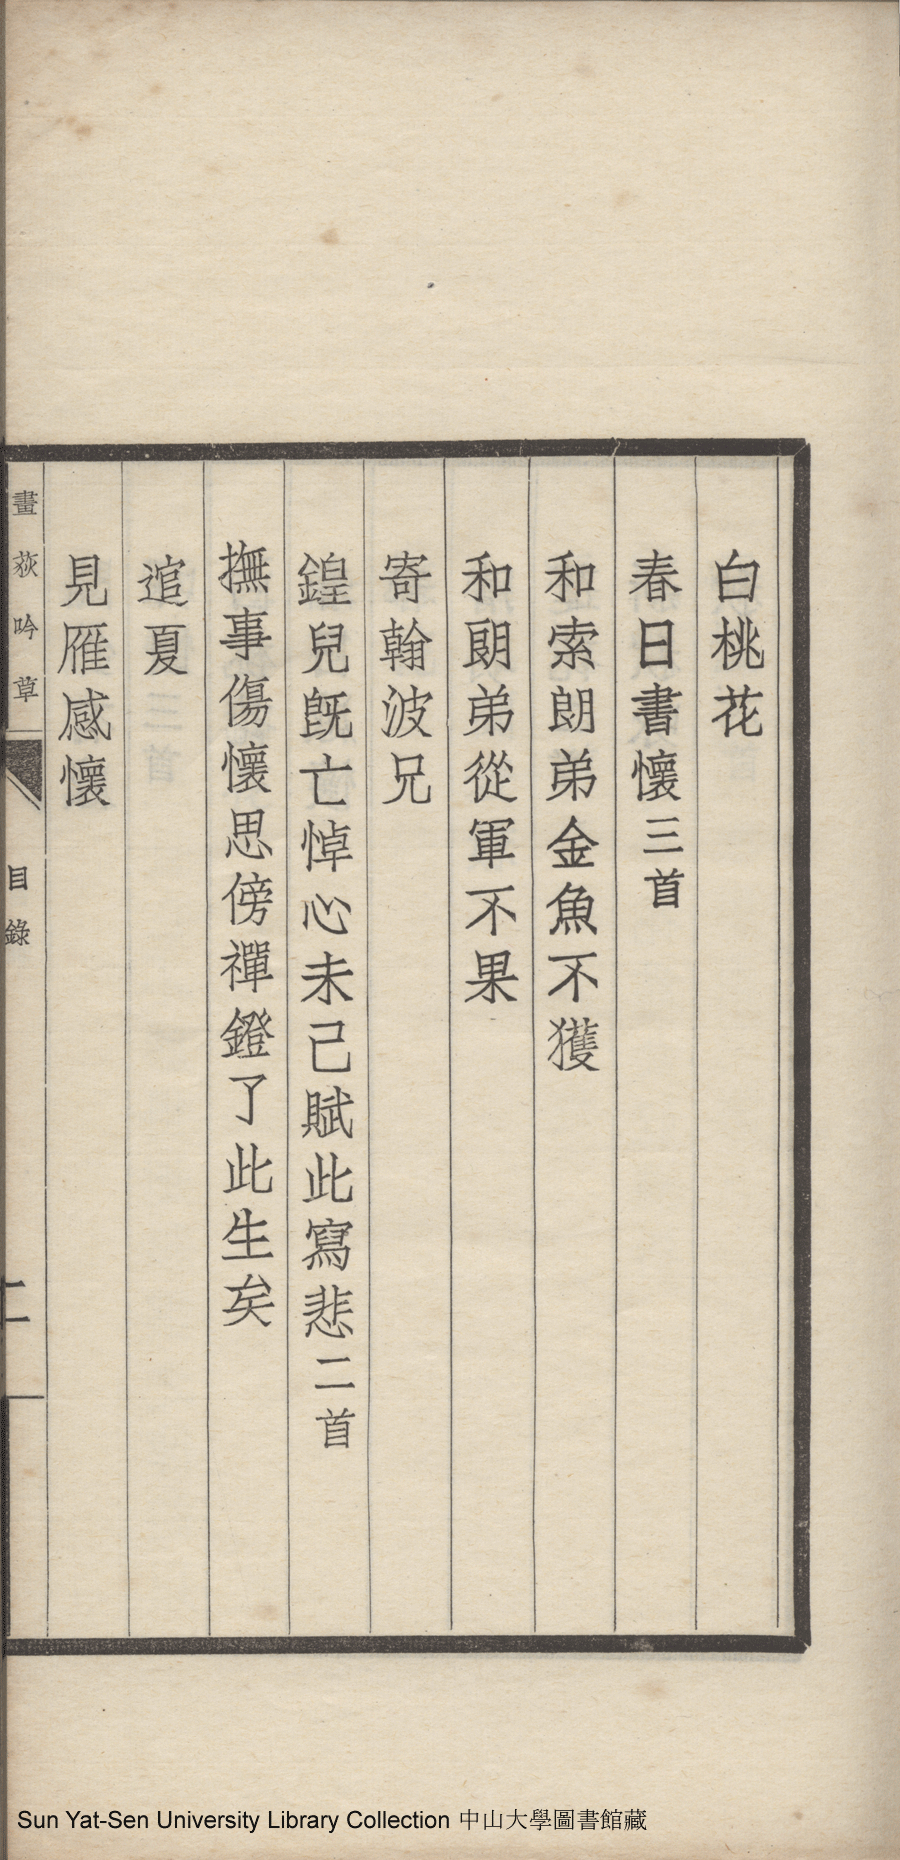 白桃花
春日書懷三首
和索朗弟金魚不獲
和朗弟從軍不果
寄翰波兄
鍠兒旣亡悼心未已賦此寫悲二首
撫事傷懷思傍禪鐙了此生矣
逭夏
見雁感懷
畫荻吟草
目錄
二
Sun Yat-Sen University Library Collection 中山大學圖書館藏